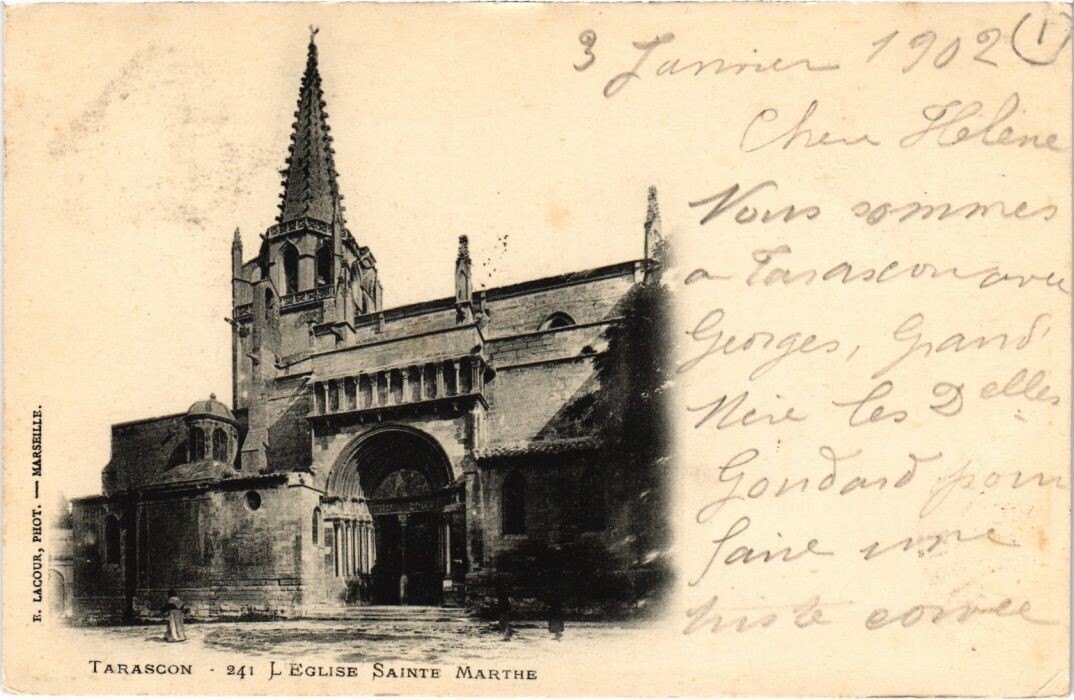 3 Janvier 1902 (1)
Chère Hélène
Nous sommes
a Tarascon avec
Georges, Grand
Mère les Delles
Gondard pour
faire une
triste corvée
E. LACOUR, PHOT. — MARSEILLE.
TARASCON - 241 L'EGLISE SAINTE MARTHE